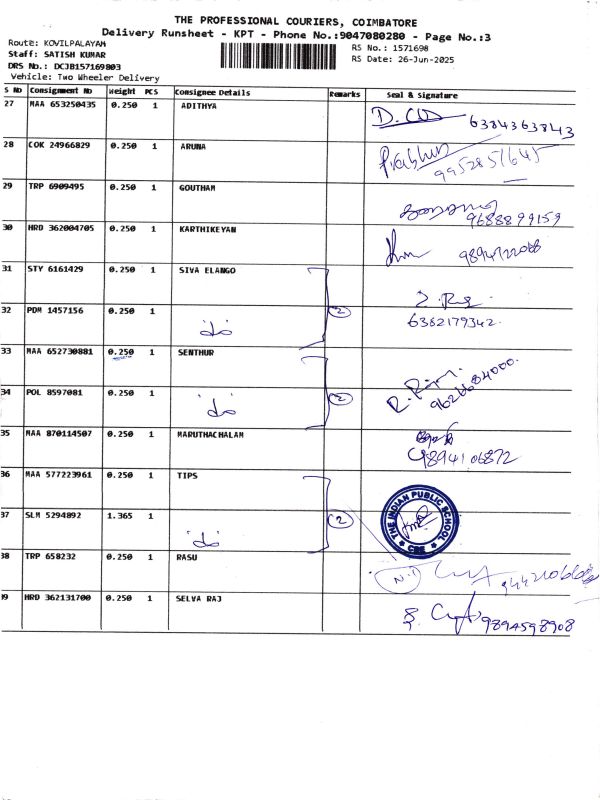 THE PROFESSIONAL COURIERS, COIMBATORE
Delivery Runsheet - KPT - Phone No.:9047080280 - Page No.:3
Route: KOVILPALAYAM
RS No.: 1571698
Staff: SATISH KUMAR
RS Date: 26-Jun-2025
DRS No.: DCJB157169803
Vehicle: Two Wheeler Delivery
S No Consignment No Weight PCS Consignee Details Remarks Seal & Signature
27 MAA 653250435 0.250 1 ADITHYA
6384363843
28 COK 24966829 0.250 1 ARUNA
Prabhu
9952851645
29 TRP 6909495 0.250 1 GOUTHAM
9688899159
30 HRD 362004705 0.250 1 KARTHIKEYAN
31 STY 6161429 0.250 1 SIVA ELANGO
32 PDM 1457156 0.250 1 do 2
6382179342
33 MAA 652730881 0.250 1 SENTHUR
34 POL 8597081 0.250 1 do 2
9626684000
35 MAA 870114507 0.250 1 MARUTHACHALAM
9894106872
36 MAA 577223961 0.250 1 TIPS
37 SLM 5294892 1.365 1 do 2
THE INDIAN PUBLIC SCHOOL
CBE
38 TRP 658232 0.250 1 RASU
39 HRD 362131700 0.250 1 SELVA RAJ
9894598908